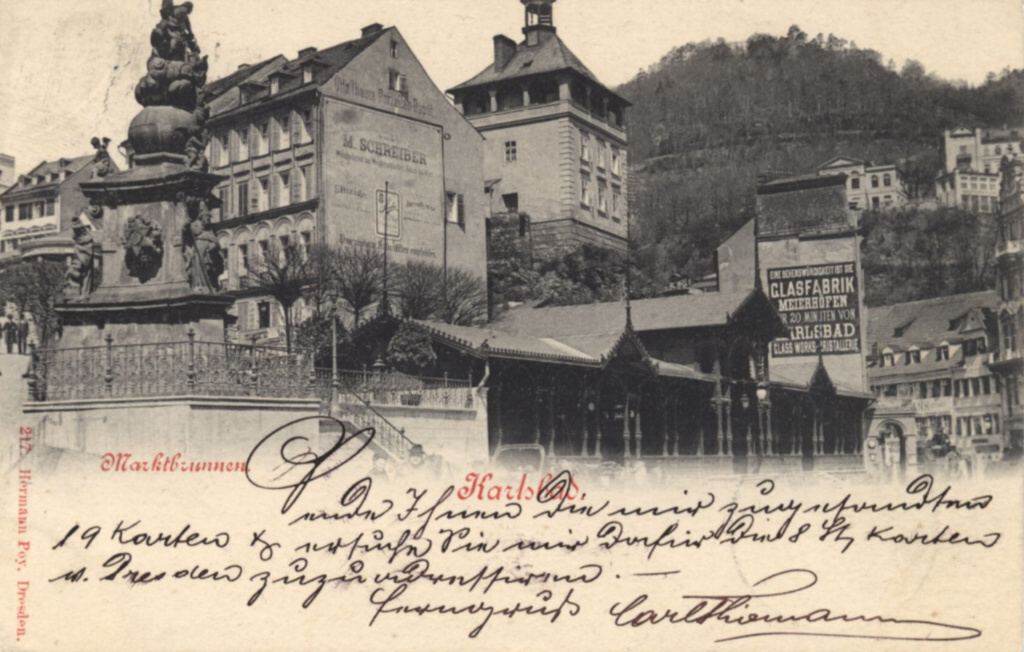 M. SCHREIBER
EINE SEHENSWÜRDIGKEIT IST DIE
GLASFABRIK
MEIERHÖFEN
20 MINUTEN VON
KARLSBAD
GLASS WORKS
Marktbrunnen.
Karlsbad.
217. Hermann Poy, Dresden.
sende Ihnen die mir zugesandten
19 Karten & ersuche Sie mir dafür die 8 St, Karten
v. Dresden zuzuadressiren. —
Ferngruß Carl Thiemann